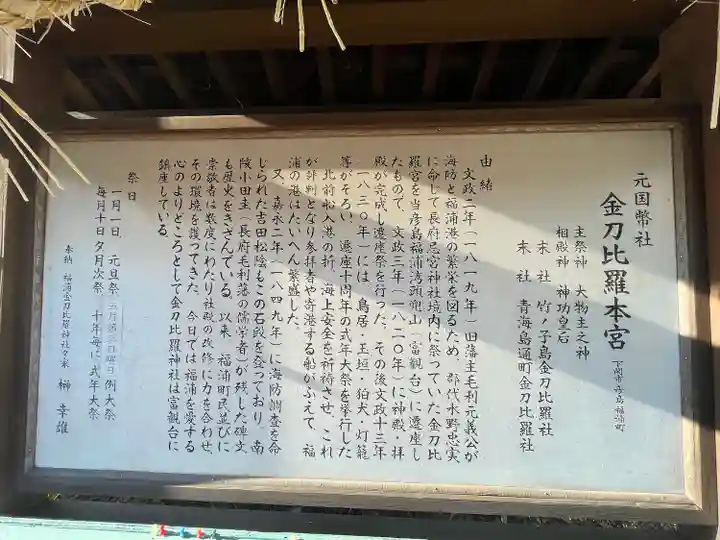 元国幣社
金刀比羅本宮
下関市彦島福浦町
主祭神 大物主之神
相殿神 神功皇后
末社 竹ノ子島金刀比羅社
末社 青海島通町金刀比羅社
由緒
文政二年(一八一九年)旧藩主毛利元義公が
海防と福浦港の繁栄を図るため、郡代水野忠実
に命じて長府忌宮神社境内に祭っていた金刀比
羅宮を当彦島福浦湾頭兜山(富観台)に遷座し
たもので、文政三年(一八二〇年)に神殿・拝
殿が完成し遷座祭を行った、その後文政十三年
(一八三〇年)には、鳥居・玉垣・狛犬・灯籠
等がそろい、遷座十周年の式年大祭を挙行した
北前船入港の折、海上安全を祈祷させ、これ
が評判となり参拝者や寄港する船がふえて、福
浦の港はたいへん繁盛した。
又、嘉永二年(一八四九年)に海防調査を命
じられた吉田松陰もこの石段を登っており、南
陵小田圭(長府毛利藩の儒学者)が残した碑文
も歴史をきざんでいる。以来、福浦町民並びに
崇敬者は数度にわたり社殿の改修に力を合わせ、
その環境を護ってきた。今日では福浦を愛する
心のよりどころとして金刀比羅神社は富観台に
鎮座している。
祭日
一月一日、元旦祭(五月第三日曜日)例大祭
毎月十日夕月次祭、十年毎に式年大祭
奉納 福浦金刀比羅神社々家 榊 幸雄